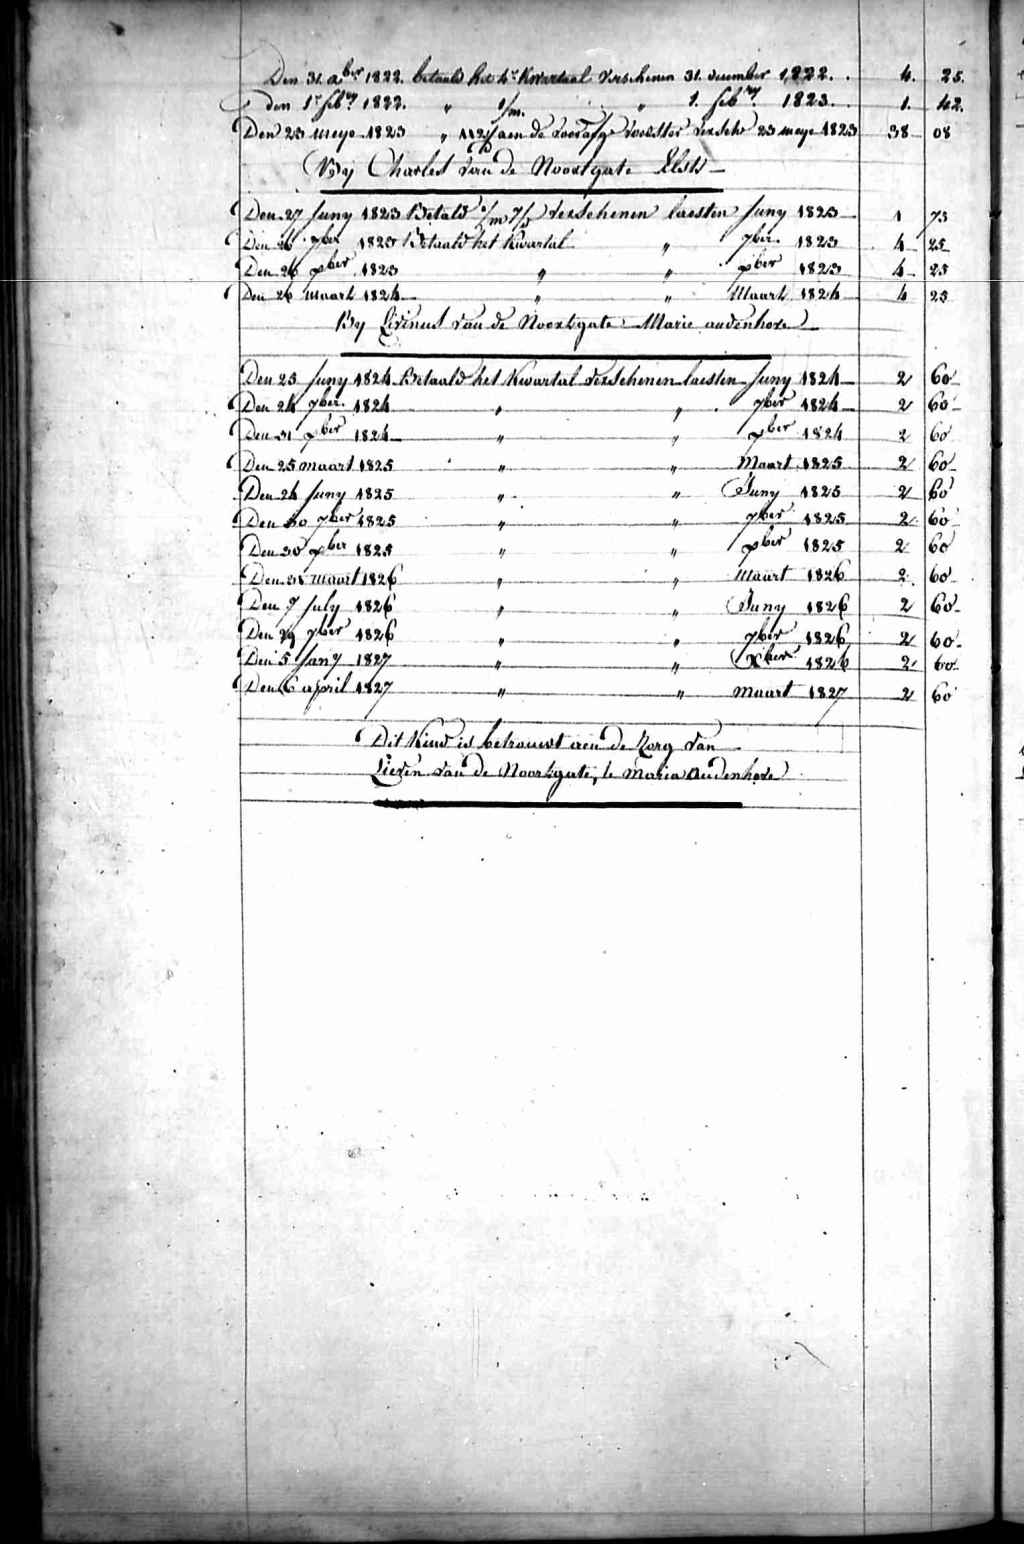 Den 31. Xber 1822. betaald het 4e Kwartaal verschenen 31. december 1822. . 4. 25.
den 1r feb.ry 1822. " 1/m. " 1. feb.ry 1823. . 1. 42.
Den 23 meye 1823 " aen de Versch 23 meye 1823 38 08
By Charles van de Noortgate Elsts
Den 27 Juny 1823 Betald Verschenen laesten Juny 1823 1 73
Den 26 7ber 1823 Betaald het Kwartal " 7ber. 1823 4 25
Den 26 xber 1823 " " xber 1823 4 25
Den 26 maart 1824 " " Maart 1824 4 25
By Livinus van de Noortgate Marie audenhove
Den 25 Juny 1824 Betaald het Kwartal Verschenen laesten Juny 1824 2 60
Den 24 7ber. 1824 " " 7ber 1824 2 60
Den 31 xber 1824 " " xber 1824 2 60
Den 25 maart 1825 " " Maart 1825 2 60
Den 24 Juny 1825 " " Juny 1825 2 60
Den 30 7ber 1825 " " 7ber 1825 2 60
Den 30 xber 1825 " " xber 1825 2 60
Den 31 maart 1826 " " Maart 1826 2 60
Den 7 July 1826 " " Juny 1826 2 60
Den 29 7ber 1826 " " 7ber 1826 2 60
Den 5 Jany 1827 " " Xber 1826 2 60
Den 6 april 1827 " " Maart 1827 2 60
Dit Kind is betrouwt aen de Zorg van
Lieven van de Noortgate, te Maria audenhove